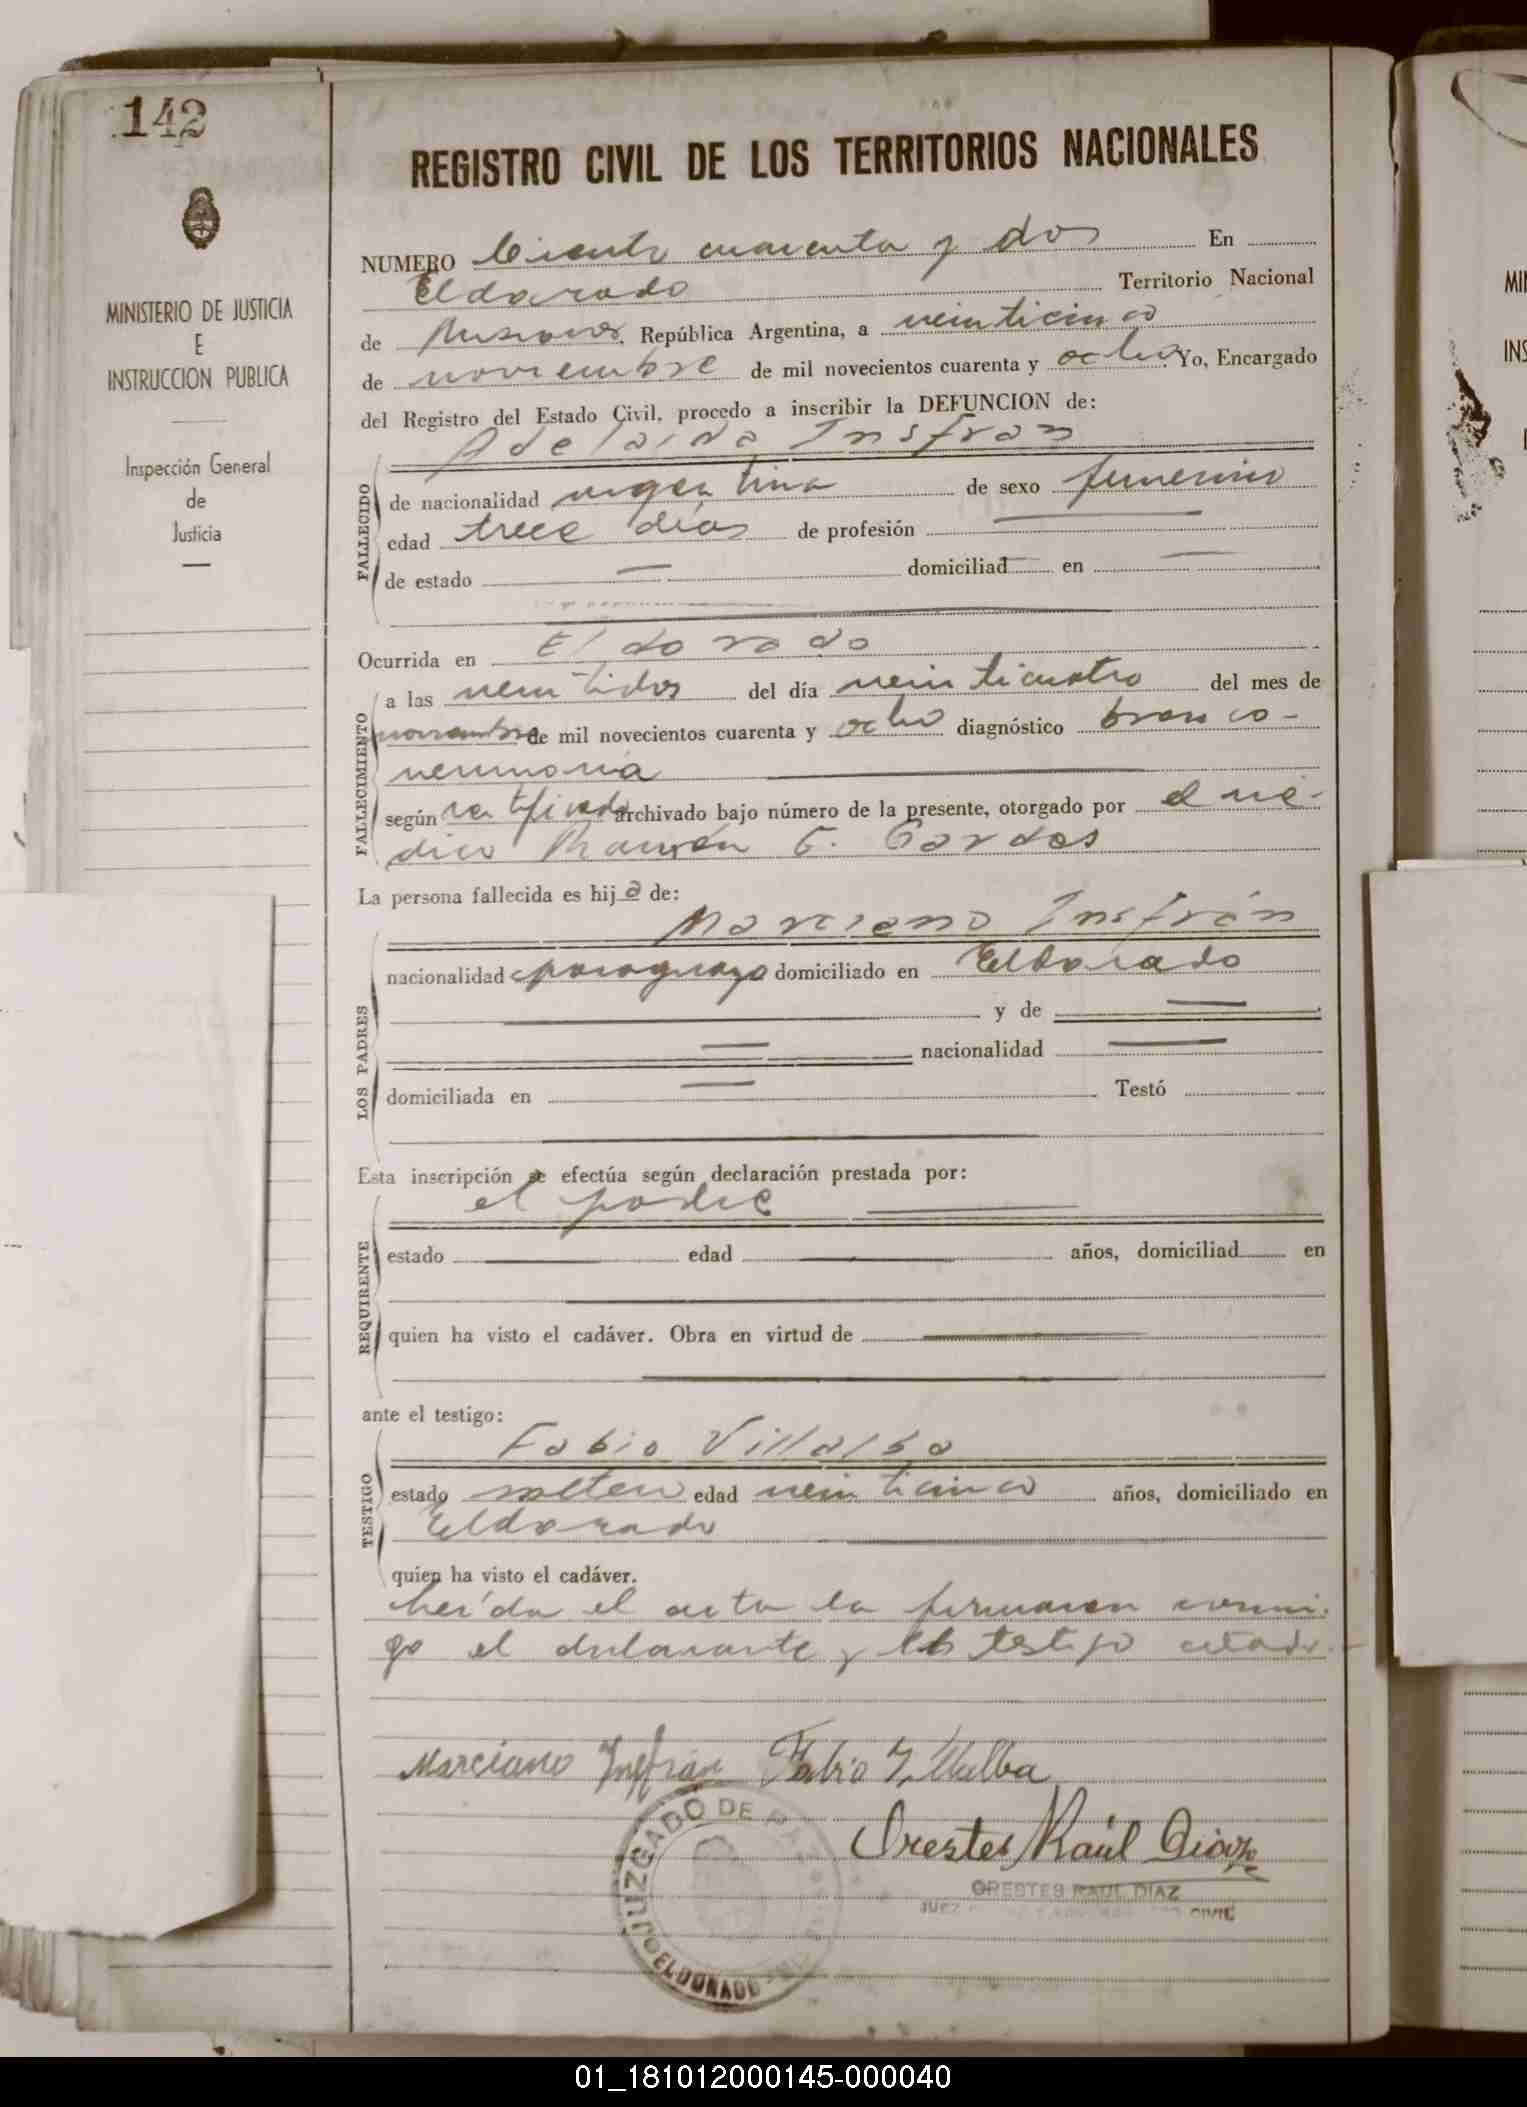 142
REGISTRO CIVIL DE LOS TERRITORIOS NACIONALES
MINISTERIO DE JUSTICIA
E
INSTRUCCION PUBLICA
Inspección General
de
Justicia
NUMERO Ciento cuarenta y dos En
Eldorado Territorio Nacional
de Misiones, República Argentina, a veinticinco
de noviembre de mil novecientos cuarenta y ocho. Yo, Encargado
del Registro del Estado Civil, procedo a inscribir la DEFUNCION de:
Adelaida Insfran
FALLECIDO
de nacionalidad argentina de sexo femenino
edad trece días de profesión
de estado domiciliad en
Ocurrida en Eldorado
FALLECIMIENTO
a las veintidos del día veinticuatro del mes de
noviembre de mil novecientos cuarenta y ocho diagnóstico bronco-
neumonia
según certificado archivado bajo número de la presente, otorgado por el mé-
dico Ramón G.
La persona fallecida es hija de:
LOS PADRES
Marciano Insfrán
nacionalidad paraguayo domiciliado en Eldorado
y de
nacionalidad
domiciliada en Testó
Esta inscripción se efectúa según declaración prestada por:
REQUIRENTE
el padre
estado edad años, domiciliad en
quien ha visto el cadáver. Obra en virtud de
ante el testigo:
TESTIGO
Fabio Villalba
estado soltero edad veinticinco años, domiciliado en
Eldorado
quien ha visto el cadáver.
Leída el acta la firmaron conmi-
go el declarante y el testigo citado.-
Marciano Insfrán Fabio Villalba
Orestes Raúl Diaz
ORESTES RAUL DIAZ
JUEZ CIVIL
JUZGADO DE PAZ
ELDORADO
MIN
INS
01_181012000145-000040